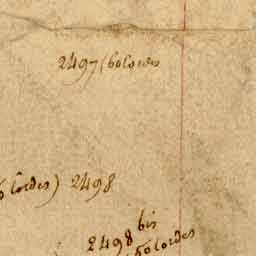 2497 (60 Cordes
Cordes) 2498
2498 bis
50 Cordes